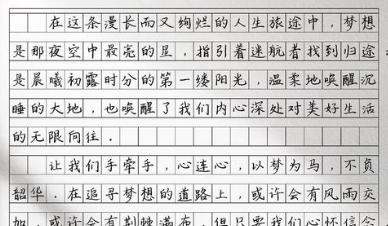 在这条漫长而又绚烂的人生旅途中，梦想
是那夜空中最亮的星，指引着迷航者找到归途，
是晨曦初露时分的第一缕阳光，温柔地唤醒沉
睡的大地，也唤醒了我们内心深处对美好生活
的无限向往．
让我们手牵手，心连心，以梦为马，不负
韶华．在追寻梦想的道路上，或许会有风雨交
加，或许会有荆棘满布，但只要我们心怀信念